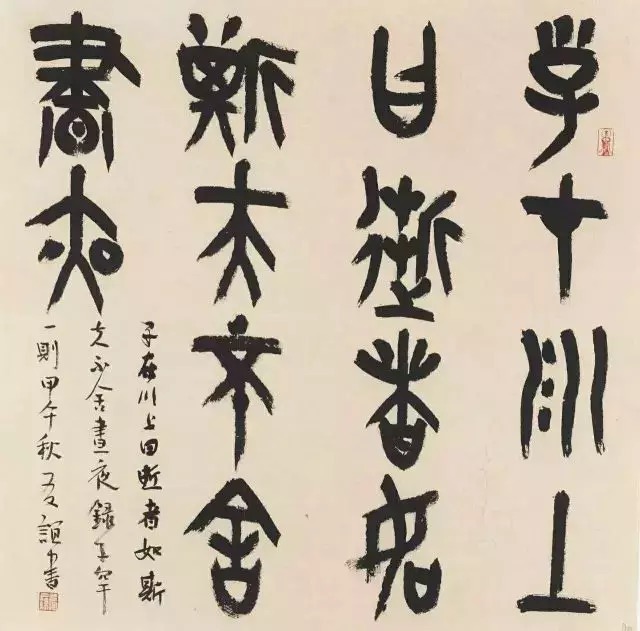 子在川上
曰逝者如
斯夫不舍
晝夜
子在川上曰逝者如斯
夫不舍晝夜錄子罕
一則甲午秋 誼 書